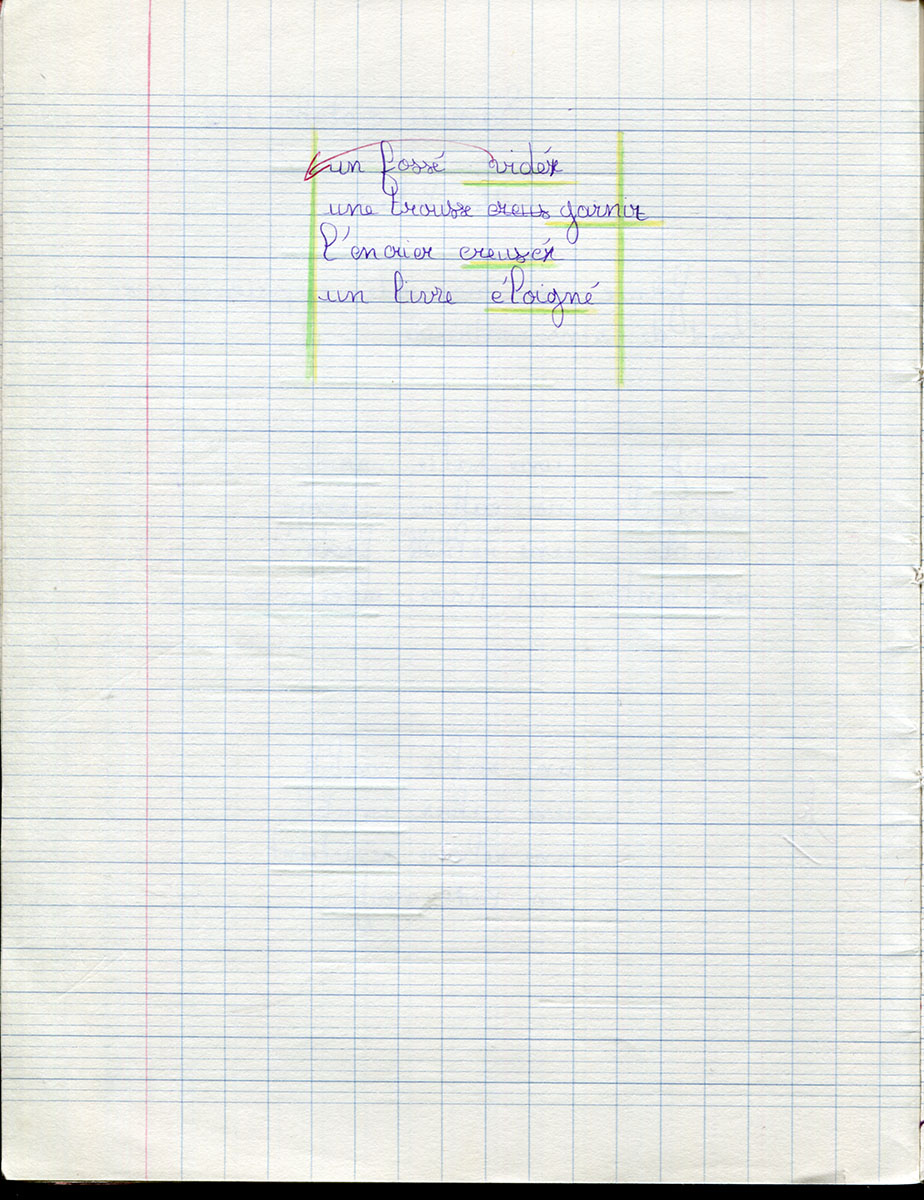 un fossé vidér
une trousse creus garnir
l'encrier creusér
un livre éloigné